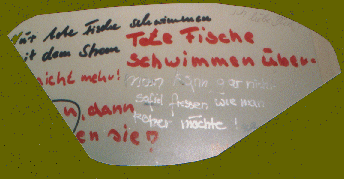 Nur tote Fische schwimmen
mit dem Strom
Tote Fische
schwimmen über-
nicht mehr!
man kann gar nicht
soviel fressen wie man
kotzen möchte!
dann
en sie?